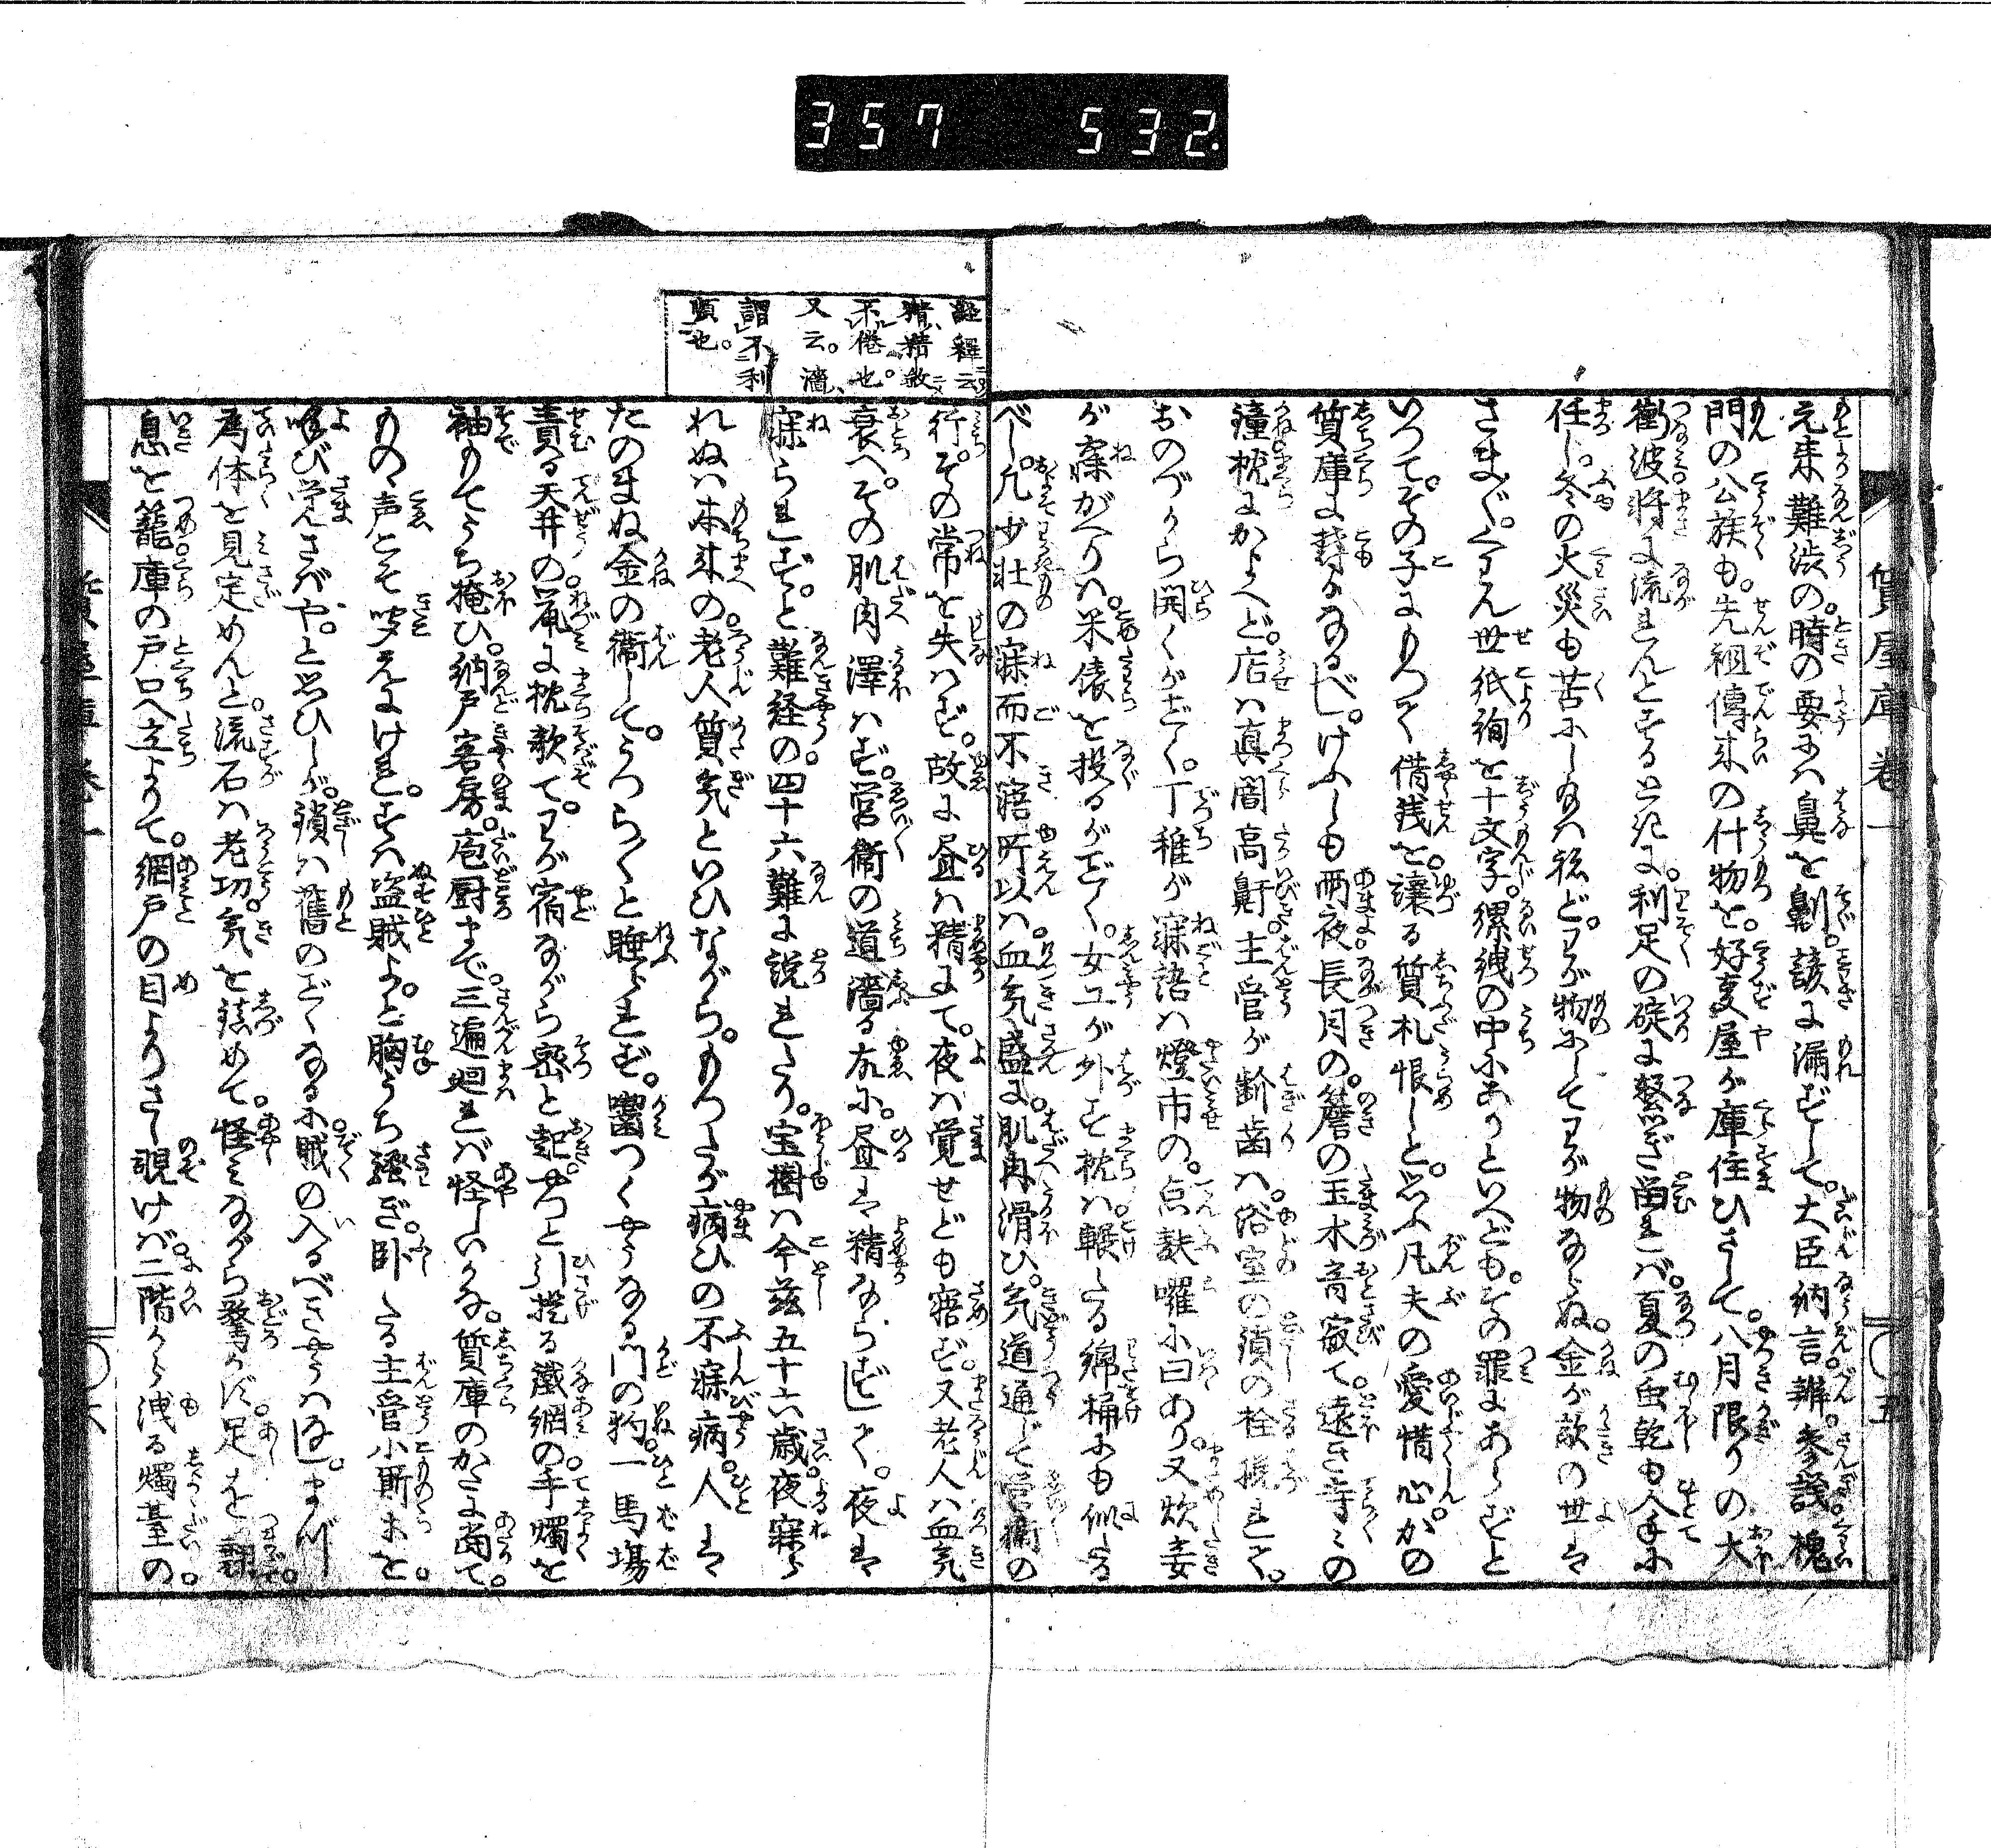 357 532.
質屋庫巻一 五
元来難渋の。時の要ふハ鼻を劓。諺に漏ずして。大臣納言辨。参議槐
門の公族も。先祖傳来の什物を。好事屋が庫住ひさして。八月限りの大
衛波将に流れんとするときに。利足の碇に繋ぎ留れバ。夏の虫乾も人手に
任し。冬の火災も苦にしなハねど。わが物にしてわが物ならぬ。金が敵の世は
さまざま。て世紙絢を十文字。縲絏の中にありといへども。その罪にあらずと
いつて。その子にめつく借銭を。譲る質札恨しと。思ふ凡夫の愛惜心。かの
質庫に 夜長月の。簷の玉水音寂て。遠き寺々の
鐘枕にかよへど。店ハ真闇高鼾。主管が齗歯ハ。浴室の湏の栓 れて。
おのづから開くがごとく。丁稚が寐語ハ燈市の。点麩 に曰あり。又炊妾
が寐がへりハ。米俵を投るがごとく。女工が外す枕ハ。輾たる綿桶にも似たる
べし。凡少壮の寐而不寤所以ハ。血気盛に。肌肉滑ひ。気道通じて営衛の
経釋云
精精敏
不倦也。
又云。濇
謂不利
順也。
行。その常を失ハず。故に昼ハ精にて。夜ハ覚せども寤ず。又老人ハ血気
衰へ。その肌肉澤ハず。営衛の道濇る故に。昼は精ならずして。夜は
寐られずと。難経の四十六難に説れたり。宝樹ハ今茲五十六歳。夜寐ら
れぬハ本来の。老人質気といひながら。もつたが病ひの不寐病。人は
たのまぬ金の衛して。うつらうつらと睡られず。齧つくやうなる門の狗。一馬場
責る天井の鼠に枕欹て。わが宿ながら密と起。やつと引提る鐵網の。手燭を
袖もてうち掩ひ。納戸客房。庖厨まで。三遍廻れバ怪しいかな。質庫のかたに当て。
ものゝ声こそ聞えにけれ。すハ盗賊よ。と胸うち騒ぎ。臥したる主管小廝等を。
喚び覚さバや。と思ひしが。鎖ハ舊のごとくなるに賊の入るべきやうハなし。まづ
為体を見定めんと。流石ハ老功。気を鎮めて。怪みながら驚かず。足を翹。
息を籠庫の戸口へ立よりて。網戸の目よりさし覗けバ。二階から洩る燭䑓の。
質屋庫巻一 六